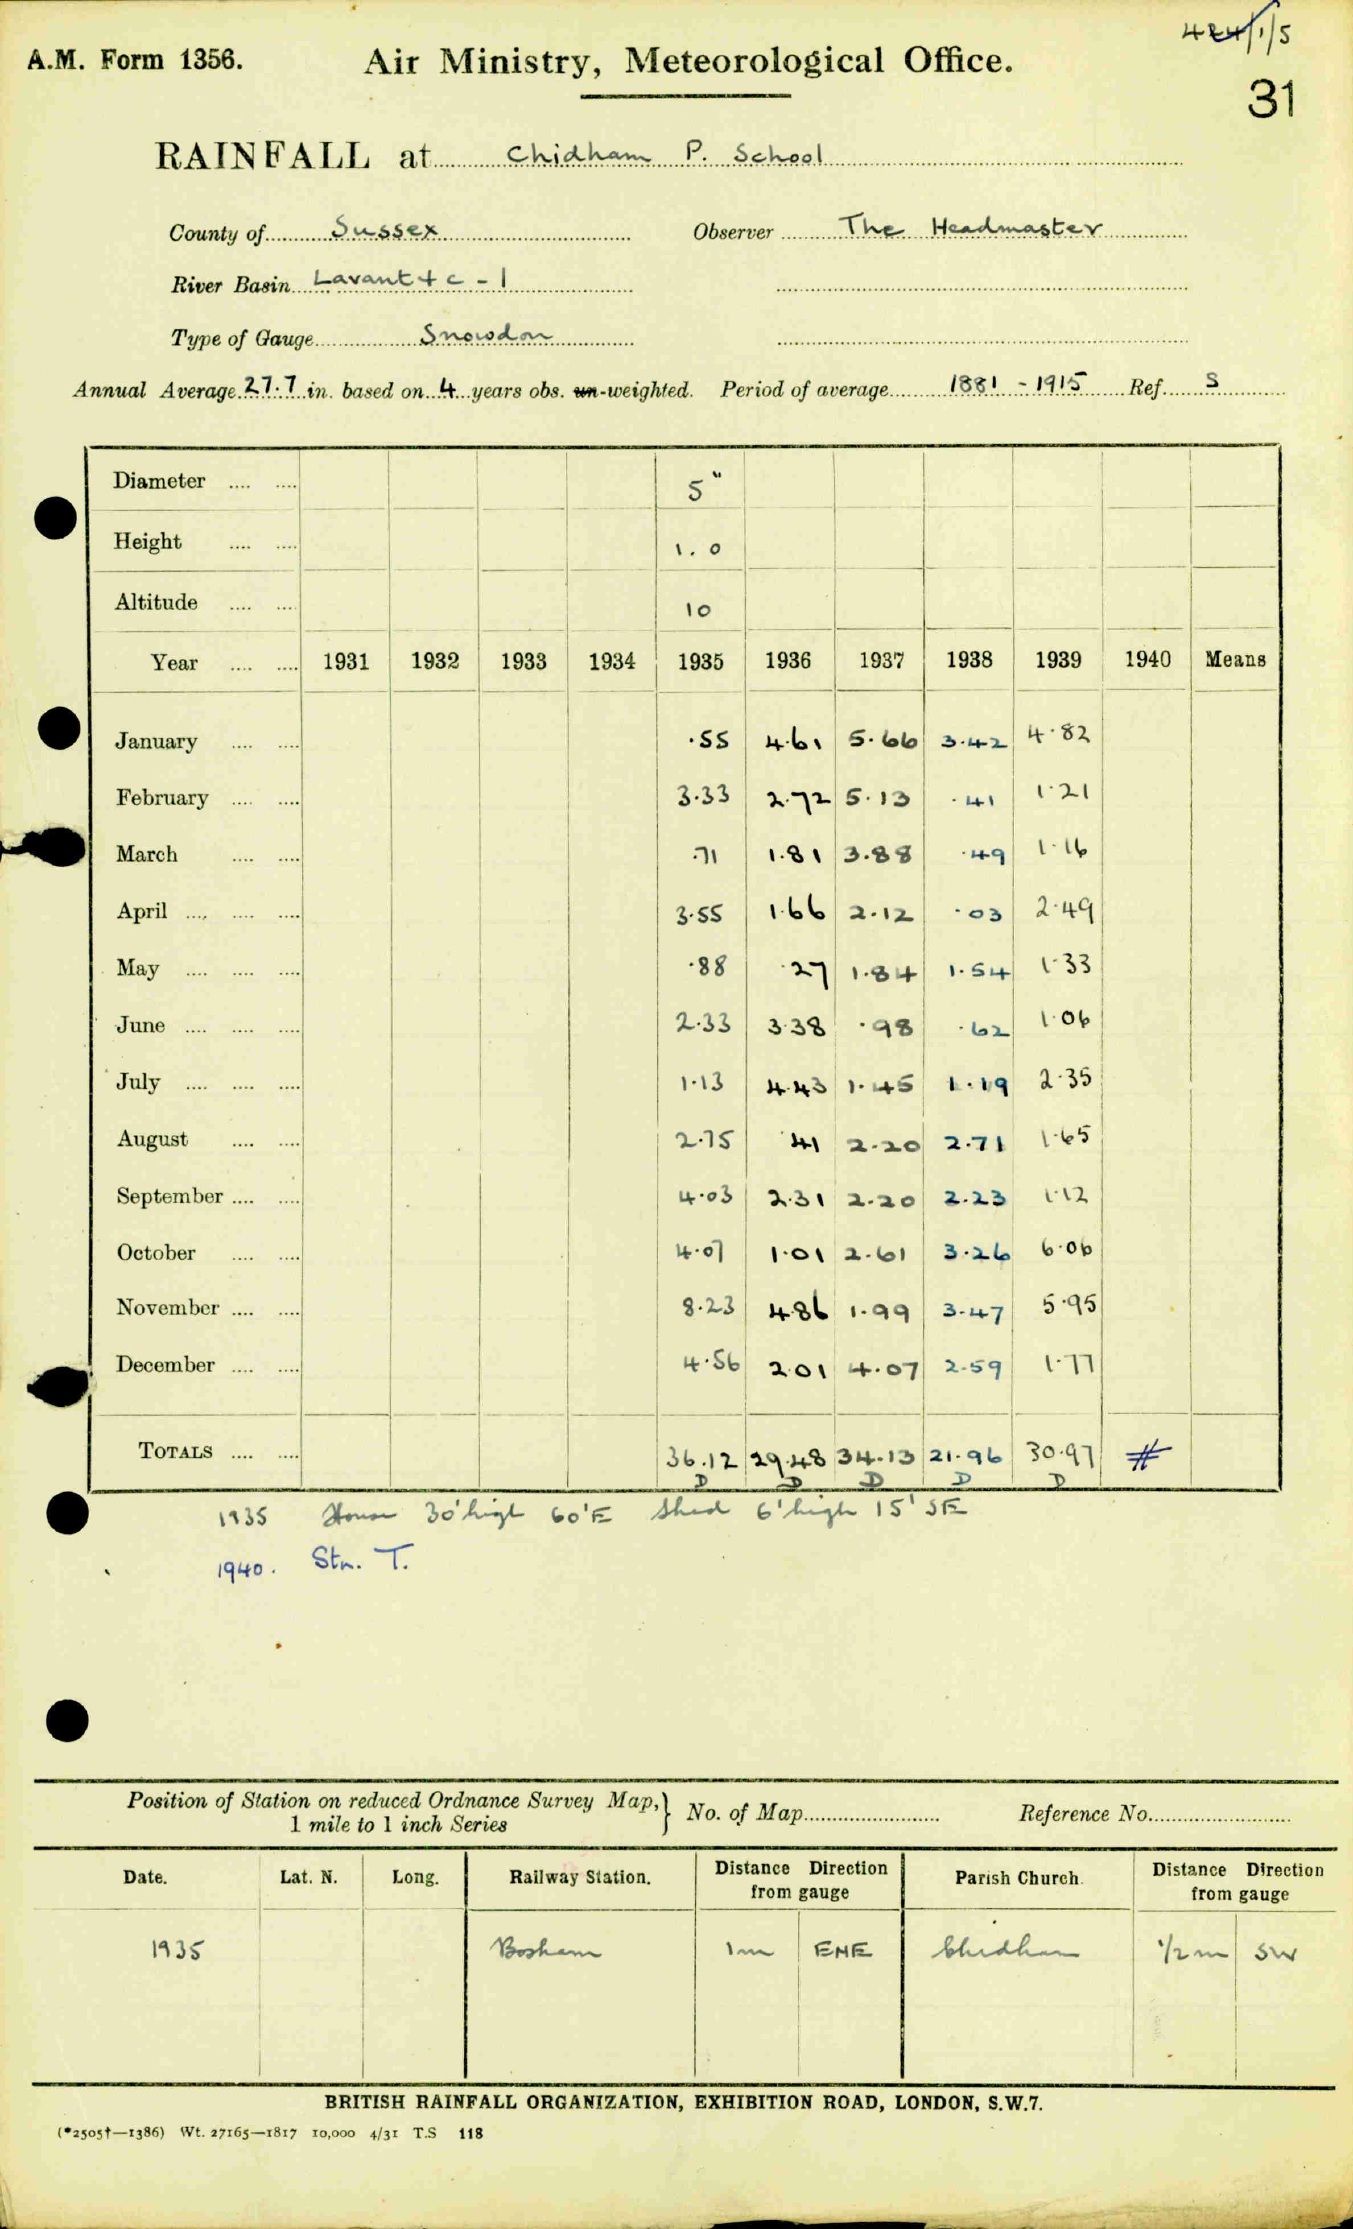 424/1/5
A.M. Form 1356. Air Ministry, Meteorological Office.
31
RAINFALL at Chidham P. School
County of Sussex Observer The Headmaster
River Basin Lavant + c - 1
Type of Gauge Snowdon
Annual Average 27.7 in. based on 4 years obs. un-weighted. Period of average 1881 - 1915 Ref. S
Diameter .... .... 5"
Height .... .... 1.0
Altitude .... .... 10
Year .... .... 1931 1932 1933 1934 1935 1936 1937 1938 1939 1940 Means
January .... .... .55 4.61 5.66 3.42 4.82
February .... .... 3.33 2.72 5.13 .41 1.21
March .... .... .71 1.81 3.88 .49 1.16
April .... .... .... 3.55 1.66 2.12 .03 2.49
May .... .... .... .88 .27 1.84 1.54 1.33
June .... .... .... 2.33 3.38 .98 .62 1.06
July .... .... .... 1.13 4.43 1.45 1.19 2.35
August .... .... 2.75 .41 2.20 2.71 1.65
September .... .... 4.03 2.31 2.20 2.23 1.12
October .... .... 4.07 1.01 2.61 3.26 6.06
November .... .... 8.23 4.86 1.99 3.47 5.95
December .... .... 4.56 2.01 4.07 2.59 1.77
TOTALS .... .... 36.12 29.48 34.13 21.96 30.97 #
D D D D D
1935 House 30' high 60'E Shed 6' high 15' SE
1940. Stn. T.
Position of Station on reduced Ordnance Survey Map, } No. of Map Reference No.
1 mile to 1 inch Series
Date. Lat. N. Long. Railway Station. Distance Direction from gauge Parish Church. Distance Direction from gauge
1935 Bosham 1m ENE Chidham 1/2 m SW
BRITISH RAINFALL ORGANIZATION, EXHIBITION ROAD, LONDON, S.W.7.
(*2505†—1386) Wt. 27165—1817 10,000 4/31 T.S 118